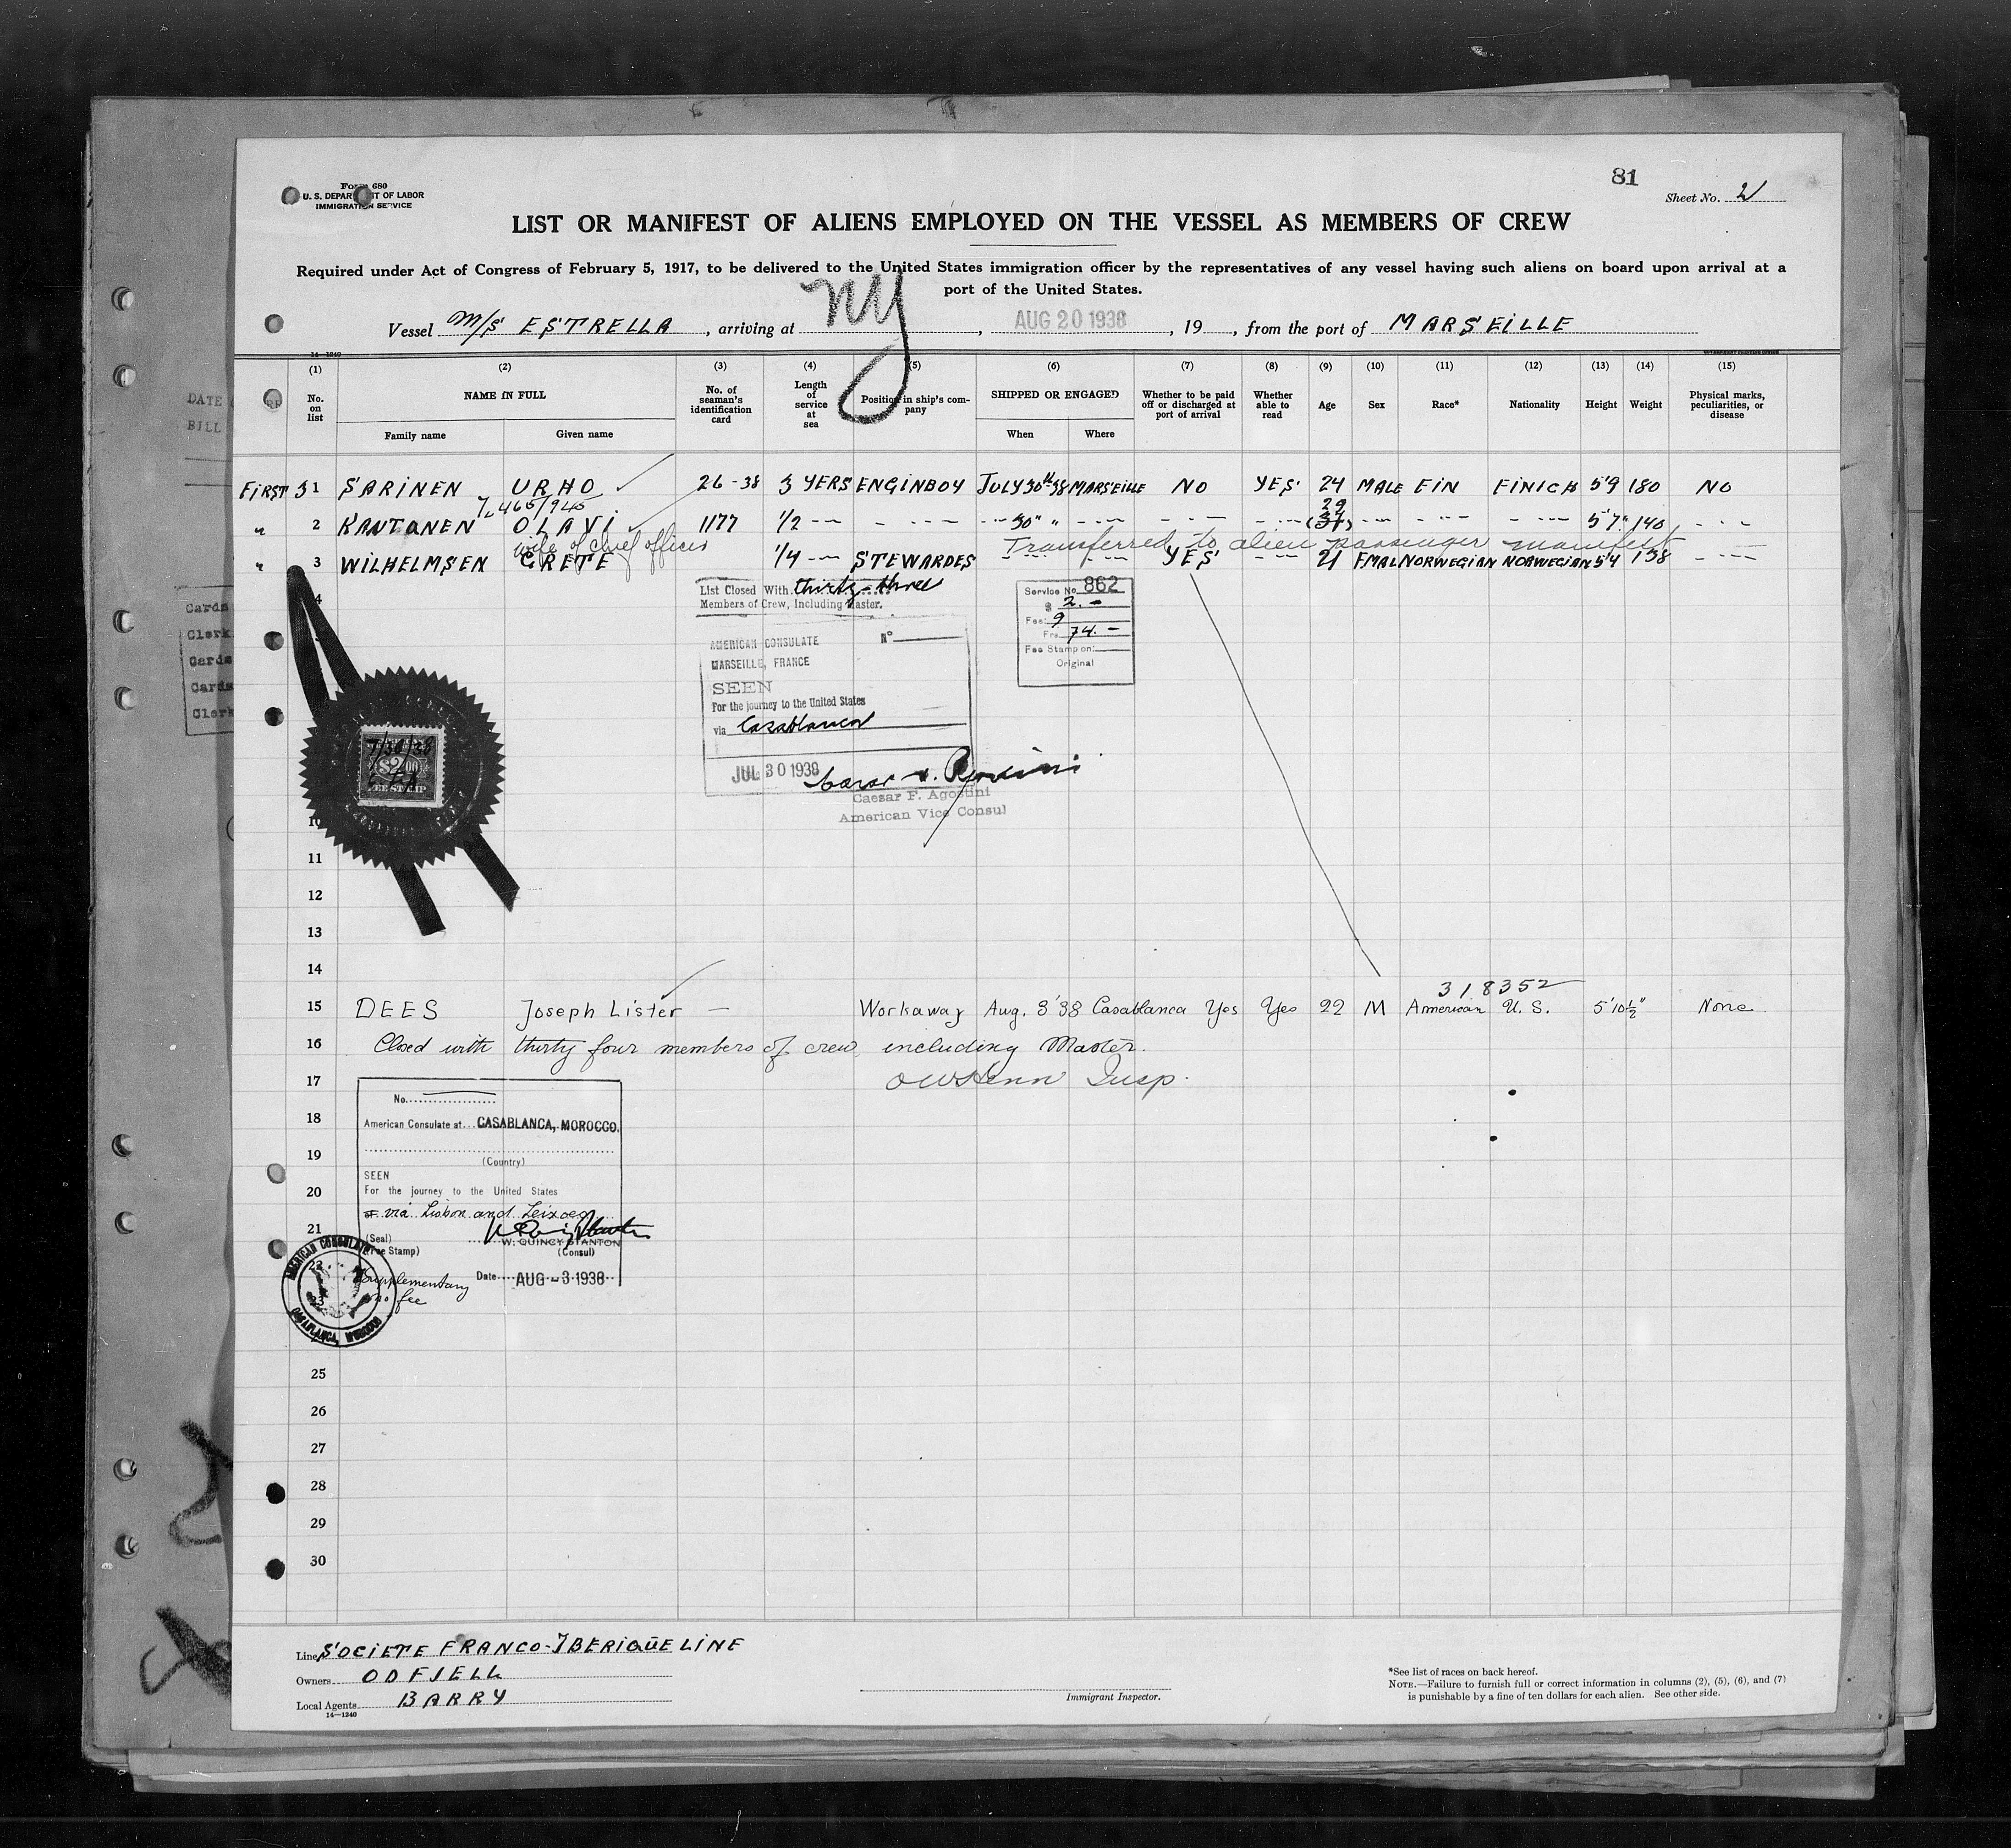 Form 680
U. S. DEPARTMENT OF LABOR
IMMIGRATION SERVICE
81
Sheet No. 2
LIST OR MANIFEST OF ALIENS EMPLOYED ON THE VESSEL AS MEMBERS OF CREW
Required under Act of Congress of February 5, 1917, to be delivered to the United States immigration officer by the representatives of any vessel having such aliens on board upon arrival at a
port of the United States.
Vessel M/S ESTRELLA, arriving at NY, AUG 20 1938, 19 , from the port of MARSEILLE
14—1240
(1) (2) (3) (4) (5) (6) (7) (8) (9) (10) (11) (12) (13) (14) (15)
No. on list NAME IN FULL Family name Given name No. of seaman's identification card Length of service at sea Position in ship's company SHIPPED OR ENGAGED When Where Whether to be paid off or discharged at port of arrival Whether able to read Age Sex Race* Nationality Height Weight Physical marks, peculiarities, or disease
FIRST 31 SARINEN URHO 26-38 3 YERS ENGINBOY JULY 30th-38 MARSEILLE NO YES 24 MALE FIN FINICH 5'9 180 NO
29
" 2 KANTONEN OLAVI 1177 1/2 -- - --- -- 30" " - -- - -- - -- (31) --- - --- - --- 5'7" 140 - - -
wife of chief officer Transferred to alien passenger manifest
" 3 WILHELMSEN GRETE 1/4 -- STEWARDES YES -- 21 FMAL NORWEGIAN NORWEGIAN 5'4 138 - ---
4
List Closed With thirty-three
Members of Crew, Including Master.
Service No. 862
$ 2.-
Fee: 9
Frs. 74.-
Fee Stamp on:
Original
AMERICAN CONSULATE N°
MARSEILLE, FRANCE
SEEN
For the journey to the United States
via Casablanca
JUL 30 1938
Caesar F. Agostini
American Vice Consul
7/30/38
$2.00
FEE STAMP
DATE
BILL
Cards
Clerk
Cards
Cards
Clerk
10
11
12
13
14
318352
15 DEES Joseph Lister — Workaway Aug. 3 '38 Casablanca Yes Yes 22 M American U. S. 5'10½" None
16 Closed with thirty four members of crew including Master.
17 Insp.
No.
18 American Consulate at CASABLANCA, MOROCCO.
19 (Country)
SEEN
20 For the journey to the United States
via Lisbon and Leixoes
21 (Seal) W. QUINCY STANTON
(Fee Stamp) (Consul)
22 Supplementary Date AUG - 3 1938
23 no fee
AMERICAN CONSULATE
CASABLANCA, MOROCCO
25
26
27
28
29
30
Line SOCIETE FRANCO-IBERIQUE LINE
Owners ODFJELL
Local Agents BARRY
14—1240
Immigrant Inspector.
*See list of races on back hereof.
NOTE.—Failure to furnish full or correct information in columns (2), (5), (6), and (7)
is punishable by a fine of ten dollars for each alien. See other side.